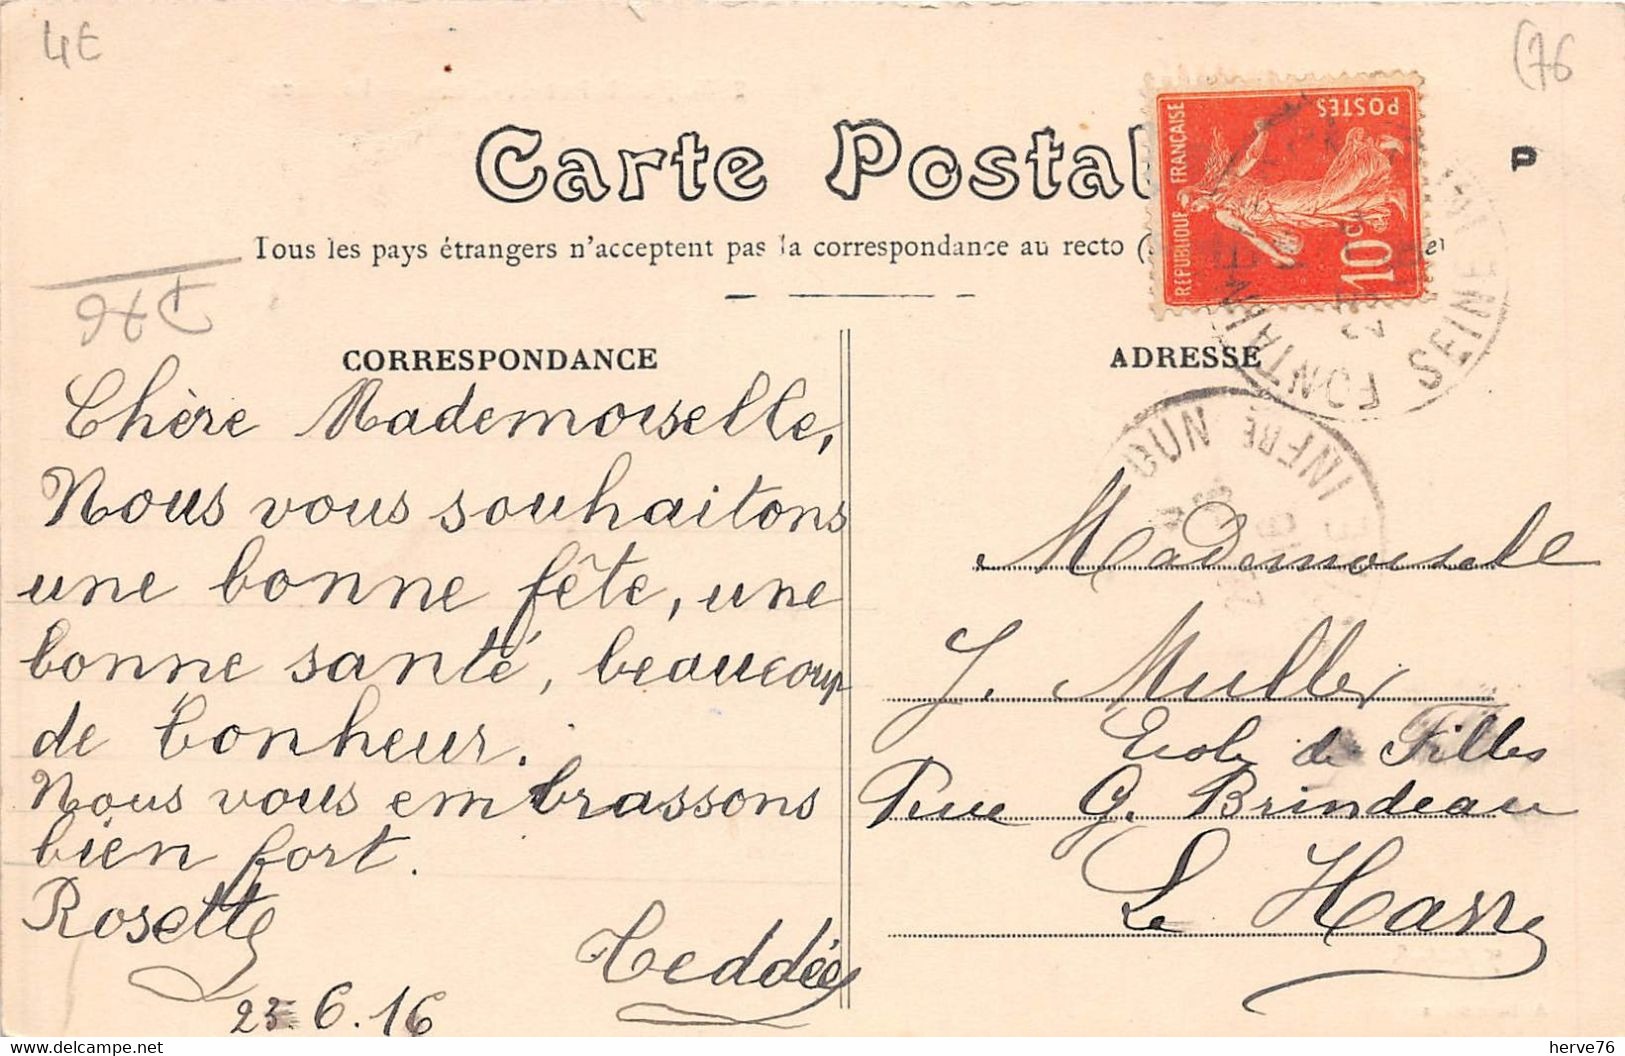 4€
(76
Carte Postal
P
Tous les pays étrangers n'acceptent pas la correspondance au recto (
REPUBLIQUE FRANÇAISE
POSTES
10 c
FONTAINE
SEINE INF
CORRESPONDANCE
ADRESSE
INFRE
Chère Mademoiselle,
Nous vous souhaitons
une bonne fête, une
bonne santé, beaucoup
de bonheur.
Nous vous embrassons
bien fort.
Rosette
Teddée
23.6.16
Mademoiselle
J. Muller
Ecole de Filles
Rue G. Brindeau
Le Havre
herve76